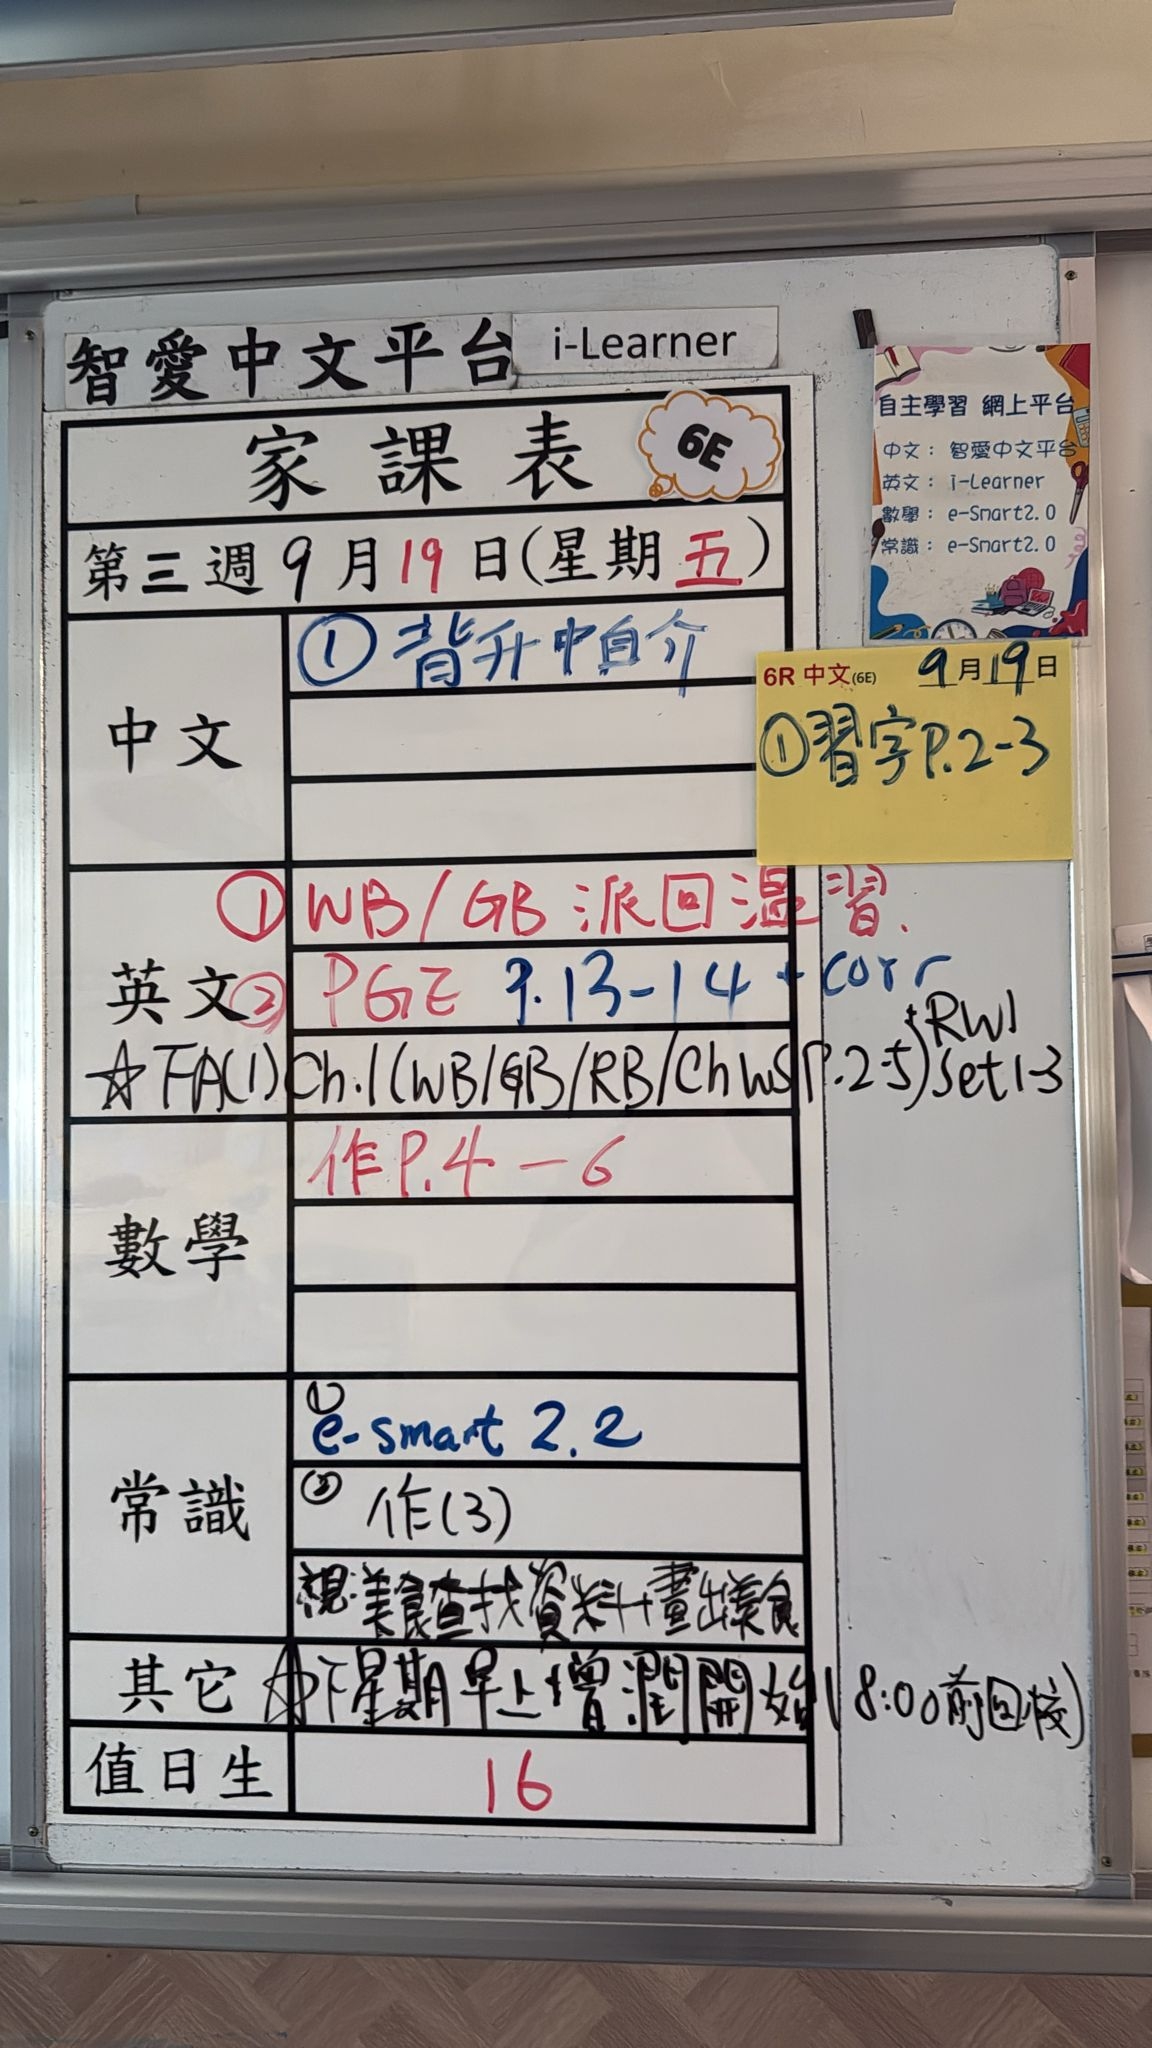 智愛中文平台 i-Learner
家課表 6E
第三週 9月19日(星期五)
自主學習 網上平台
中文：智愛中文平台
英文：i-Learner
數學：e-Smart2.0
常識：e-Smart2.0
中文
① 背升中自介
6R 中文(6E) 9月19日
①習字P.2-3
英文
① WB/GB 派回溫習.
② PGE P.13-14 + corr
☆ FA(1) Ch.1(WB/GB/RB/Ch WS P.2-5) + RW1 Set 1-3
數學
作P.4-6
常識
① e-smart 2.2
② 作(3)
視:美食查找資料+畫出美食
其它
☆下星期早上增潤開始(8:00前回校)
值日生
16